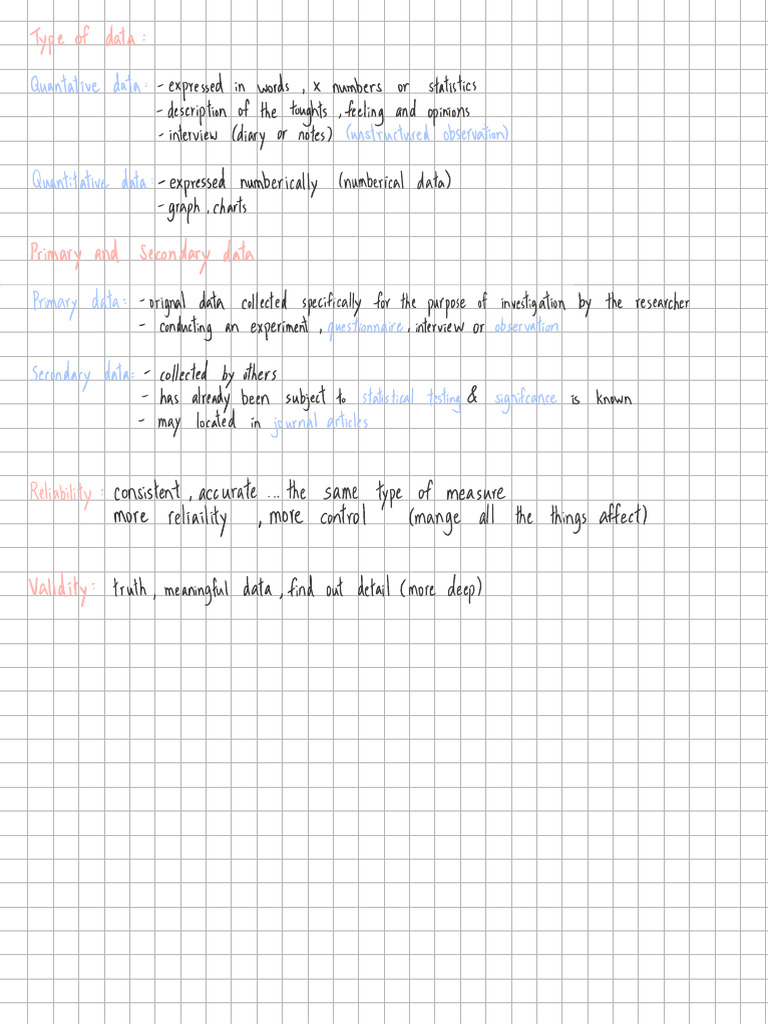 Type of data:
Quantative data: - expressed in words, x numbers or statistics
- description of the toughts, feeling and opinions
- interview (diary or notes) (unstructured observation)
Quantitative data: - expressed numberically (numberical data)
- graph, charts
Primary and Secondary data
Primary data: - orignal data collected specifically for the purpose of investigation by the researcher
- conducting an experiment, questionnaire, interview or observation
Secondary data: - collected by others
- has already been subject to statistical testing & signifcance is known
- may located in journal articles
Reliability: consistent, accurate ... the same type of measure
more reliaility, more control (mange all the things affect)
Validity: truth, meaningful data, find out detail (more deep)